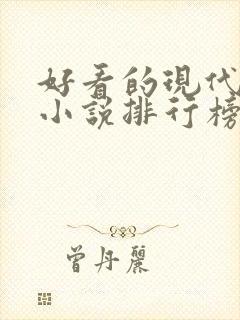 好看的現代
小說排行榜
曾丹麗